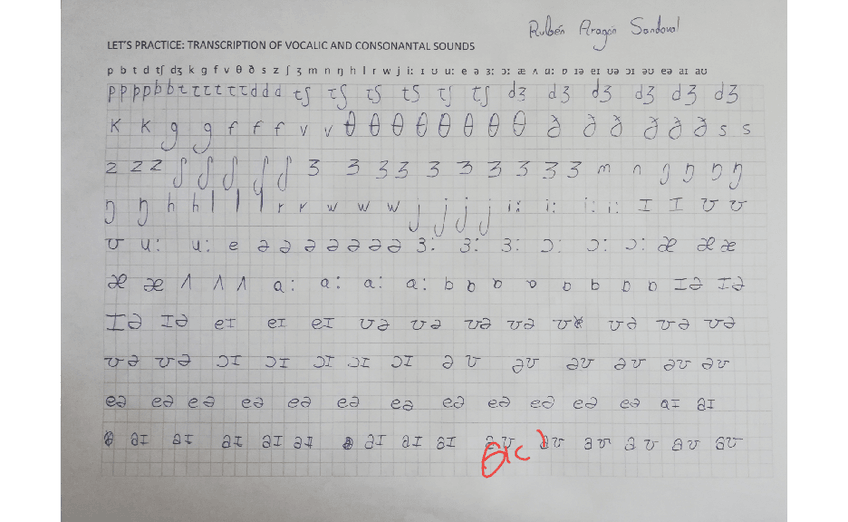 Rubén Aragón Sandoval
LET'S PRACTICE: TRANSCRIPTION OF VOCALIC AND CONSONANTAL SOUNDS
p b t d tʃ dʒ k g f v θ ð s z ʃ ʒ m n ŋ h l r w j iː ɪ ʊ uː e ə ɜː ɔː æ ʌ ɑː ɒ ɪə eɪ ʊə ɔɪ əʊ eə aɪ aʊ
p p p p b b t t t t t t d d d tʃ tʃ tʃ tʃ tʃ tʃ dʒ dʒ dʒ dʒ dʒ dʒ
k k g g f f f v v θ θ θ θ θ θ θ θ ð ð ð ð ð ð s s
z z z ʃ ʃ ʃ ʃ ʃ ʒ ʒ ʒ ʒ ʒ ʒ ʒ ʒ ʒ ʒ m n ŋ ŋ ŋ ŋ
ŋ ŋ h h l l l r r w w w j j j j iː iː iː iː ɪ ɪ ʊ ʊ
ʊ uː uː e ə ə ə ə ə ə ə ɜː ɜː ɜː ɔː ɔː ɔː æ æ æ
æ æ ʌ ʌ ʌ ɑː ɑː ɑː ɑː ɒ ɒ ɒ ɒ ɒ ɒ ɒ ɒ ɪə ɪə
ɪə ɪə eɪ eɪ eɪ ʊə ʊə ʊə ʊə ʊə ʊə ʊə ʊə
ʊə ʊə ɔɪ ɔɪ ɔɪ ɔɪ ɔɪ əʊ əʊ əʊ əʊ əʊ əʊ
eə eə eə eə eə eə eə eə eə eə eə eə aɪ aɪ
aɪ aɪ aɪ aɪ aɪ aɪ aɪ aɪ aʊ aʊ aʊ aʊ aʊ aʊ